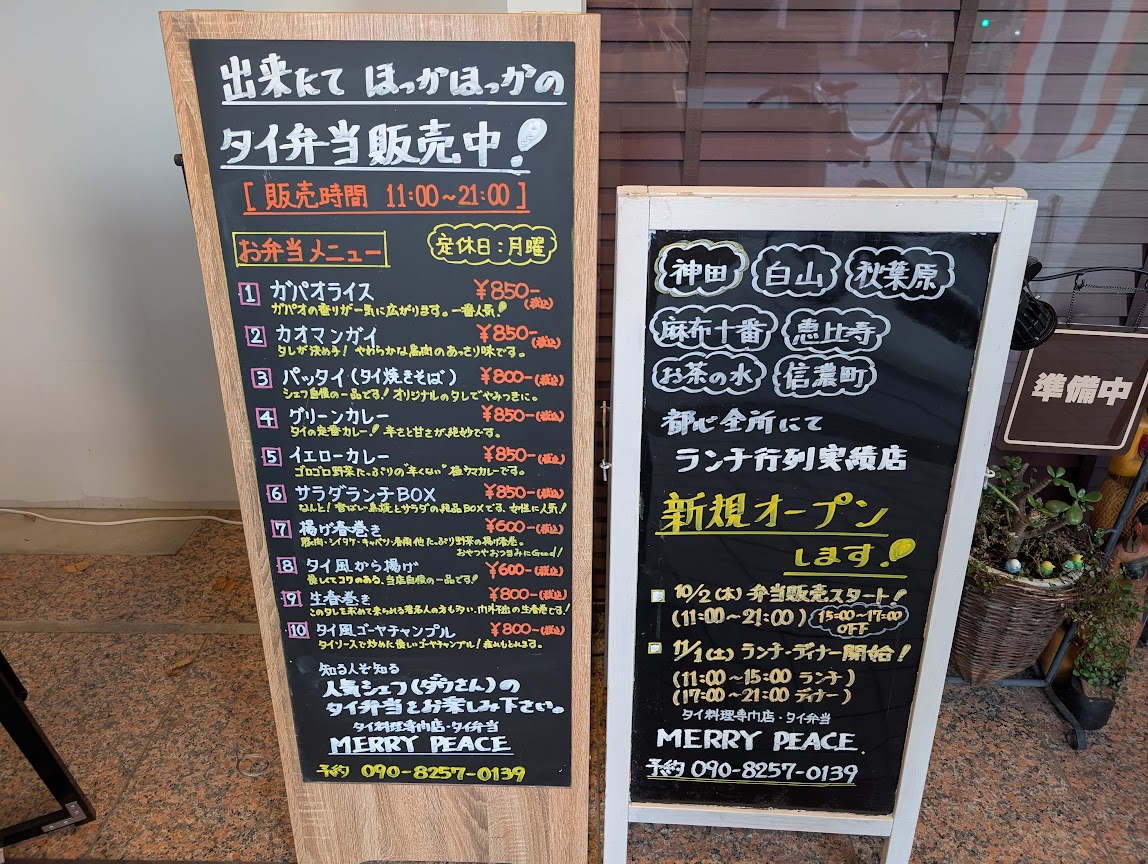 出来たて ほっかほっかの
タイ弁当販売中!
[ 販売時間 11:00~21:00 ]
お弁当メニュー
定休日:月曜
1 ガパオライス ¥850-(税込)
ガパオの香りが一気に広がります。一番人気!
2 カオマンガイ ¥850-(税込)
タレが決め手! やわらかな鳥肉のあっさり味です。
3 パッタイ(タイ焼きそば) ¥800-(税込)
シェフ自慢の一品です! オリジナルのタレでやみつきに。
4 グリーンカレー ¥850-(税込)
タイの定番カレー! 辛さと甘さが絶妙です。
5 イエローカレー ¥850-(税込)
ゴロゴロ野菜たっぷりの"辛くない"極ウマカレーです。
6 サラダランチBOX ¥850-(税込)
なんと! 香ばし鳥焼とサラダの絶品BOXです。女性に人気!
7 揚げ春巻き ¥600-(税込)
豚肉・シイタケ・キャベツ・春雨他 たっぷり野菜の揚げ春巻。
おやつやおつまみにGood!
8 タイ風から揚げ ¥600-(税込)
優しくてコクのある、当店自慢の一品です!
9 生春巻き ¥800-(税込)
このタレを求めて来られる著名人の方も多い、門外不出の生春巻です!
10 タイ風ゴーヤチャンプル ¥800-(税込)
タイソースで炒めた優しいゴーヤチャンプル! 疲れもとれるす。
知る人ぞ知る
人気シェフ(ダウさん)の
タイ弁当をお楽しみ下さい。
タイ料理専門店・タイ弁当
MERRY PEACE
予約 090-8257-0139
神田 白山 秋葉原
麻布十番 恵比寿
お茶の水 信濃町
都心全所にて
ランチ行列実績店
新規オープン
します!
10/2(木) 弁当販売スタート!
(11:00~21:00) 15:00~17:00
OFF
11/1(土) ランチ・ディナー開始!
(11:00~15:00 ランチ)
(17:00~21:00 ディナー)
タイ料理専門店・タイ弁当
MERRY PEACE.
予約 090-8257-0139
準備中